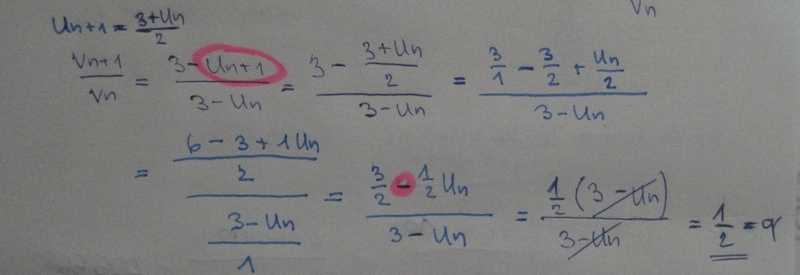 Vn
Un+1 = (3+Un)/2
Vn+1/Vn = (3-Un+1)/(3-Un) = (3 - (3+Un)/2)/(3-Un) = (3/1 - 3/2 + Un/2)/(3-Un)
= ((6-3+1Un)/2)/((3-Un)/1) = (3/2 - 1/2 Un)/(3-Un) = (1/2 (3-Un))/(3-Un) = 1/2 = q